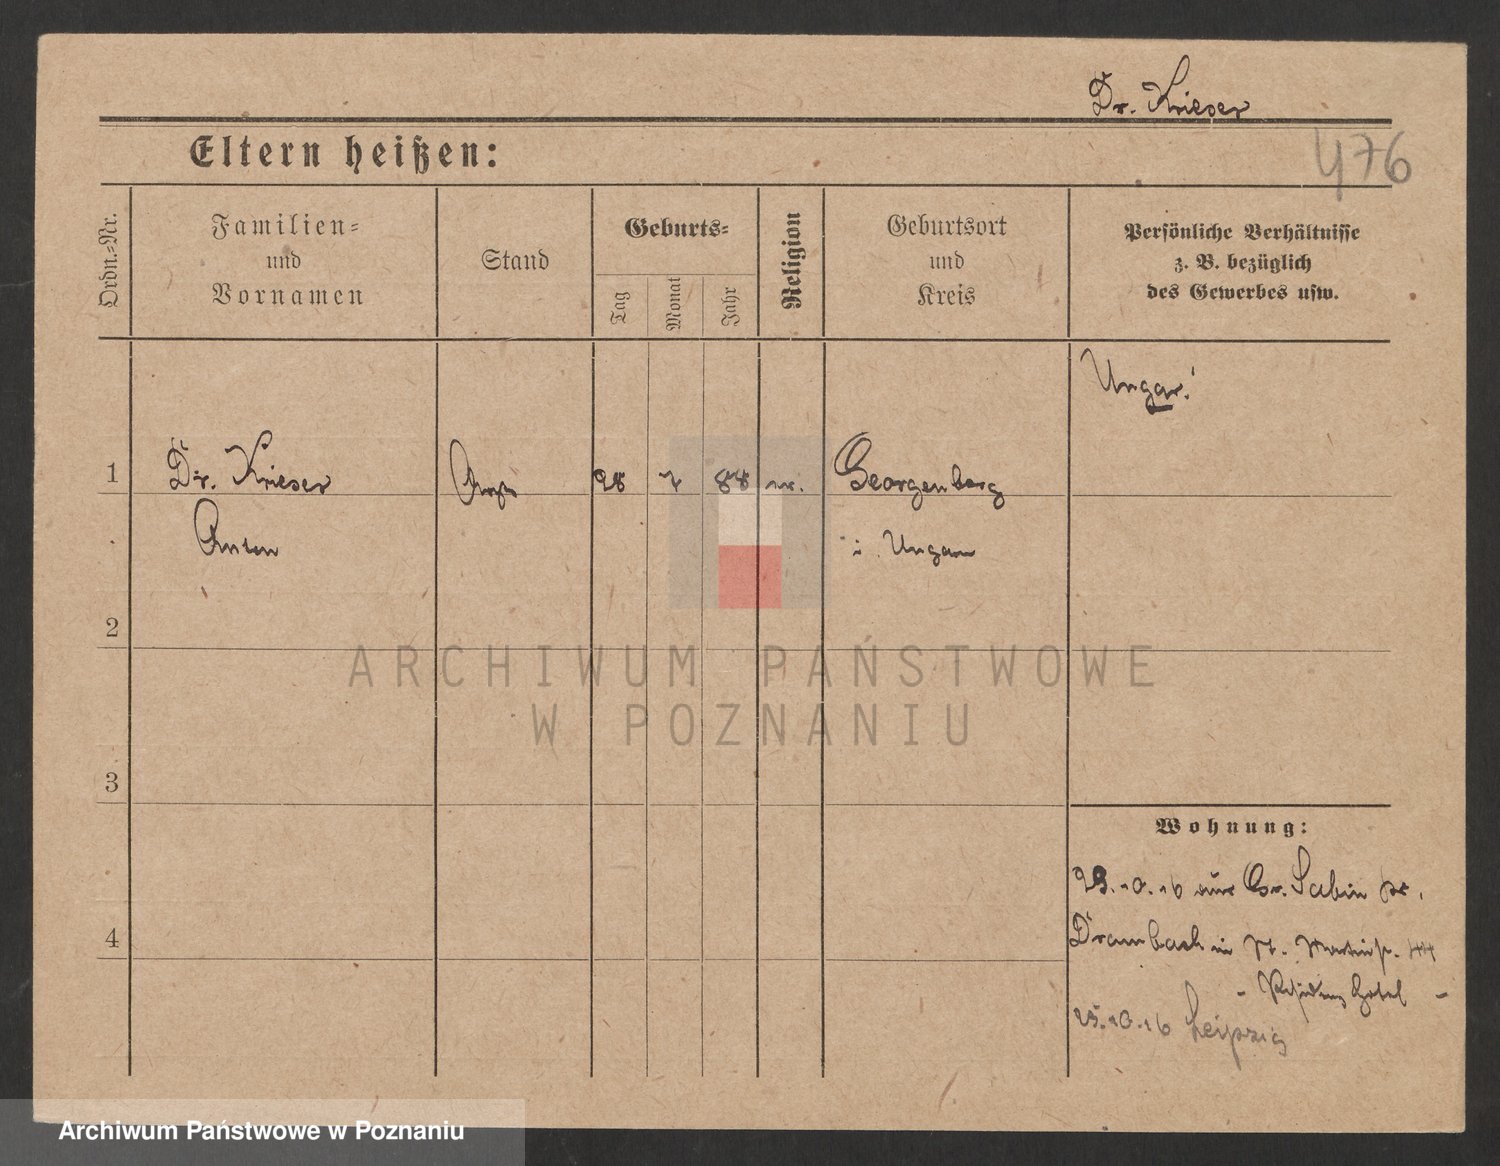 Dr. Krieser
476
Eltern heißen:
Ordn.-Nr.
Familien-
und
Vornamen
Stand
Geburts-
Tag
Monat
Jahr
Religion
Geburtsort
und
Kreis
Persönliche Verhältnisse
z. B. bezüglich
des Gewerbes usw.
Ungar!
1
Dr. Krieser
Anton
Arzt
28
7
88
Georgenberg
i. Ungarn
2
3
4
Wohnung:
29.10.16 aus
Drambach in St. Martinstr. 44
- Residenz Hotel -
25.10.16 Leipzig
ARCHIWUM PAŃSTWOWE
W POZNANIU
Archiwum Państwowe w Poznaniu